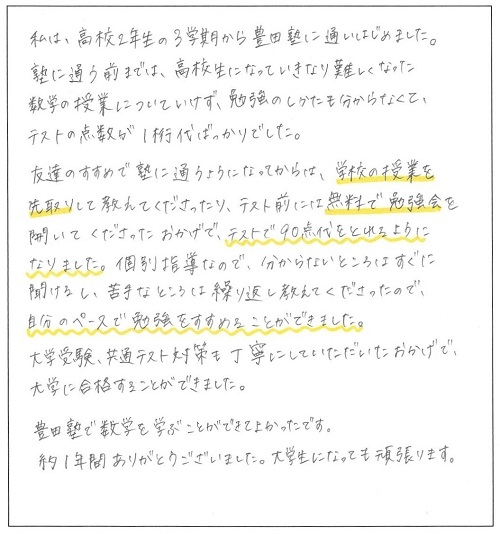 私は、高校2年生の3学期から豊田塾に通いはじめました。
塾に通う前までは、高校生になっていきなり難しくなった
数学の授業についていけず、勉強のしかたも分からなくて、
テストの点数が1桁代ばっかりでした。
友達のすすめで塾に通うようになってからは、学校の授業を
先取りして教えてくださったり、テスト前には無料で勉強会を
開いてくださったおかげで、テストで90点代をとれるように
なりました。個別指導なので、分からないところはすぐに
聞けるし、苦手なところは繰り返し教えてくださったので、
自分のペースで勉強をすすめることができました。
大学受験、共通テスト対策も丁寧にしていただいたおかげで、
大学に合格することができました。
豊田塾で数学を学ぶことができてよかったです。
約1年間ありがとうございました。大学生になっても頑張ります。